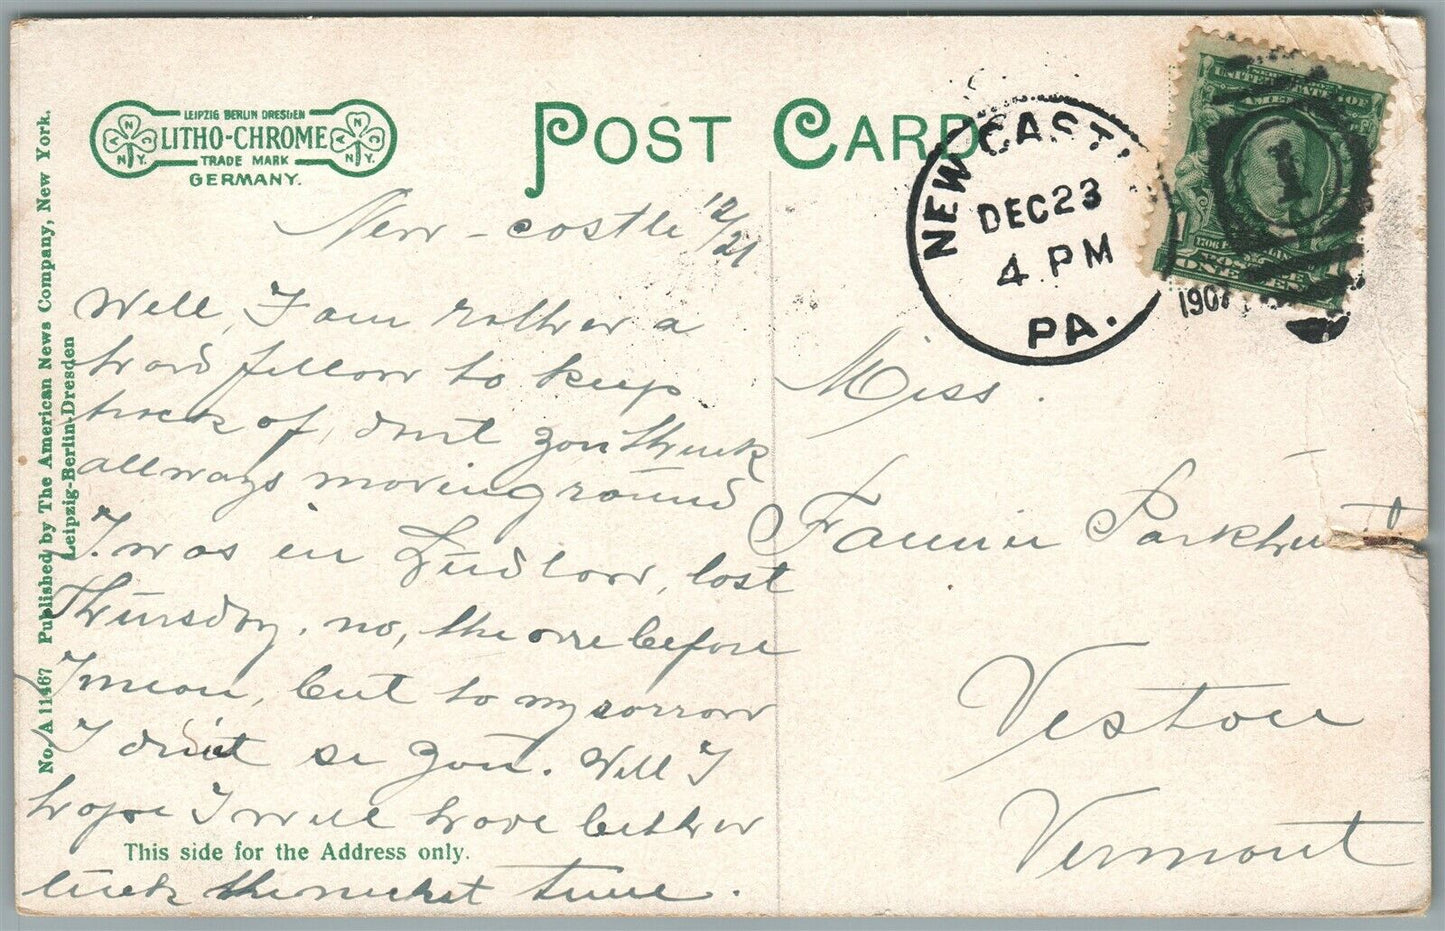 LEIPZIG BERLIN DRESDEN
LITHO-CHROME
TRADE MARK
GERMANY.
N N C N.Y.
N N C N.Y.
POST CARD
NEW CASTL
DEC 23
4 PM
PA.
1907
1
UNITED STATES OF
POSTAGE
ONE CENT
No. A 11467 Published by The American News Company, New York.
Leipzig-Berlin-Dresden
New-castle 12/21
Well, I am rather a
hard fellow to keep
track of, don't you think
allways moving round
I was in Ludlow, last
Thursday, no, the one before
I mean, but to my sorrow
I didn't se you. Well I
hope I will have better
This side for the Address only.
luck the next time.
Miss.
Fannie Parkhurst
Weston
Vermont